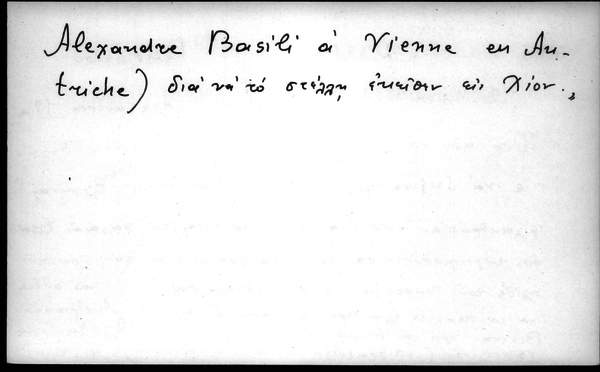 Alexandre Basili à Vienne en Au-
triche) διά νά τό στέλλῃ ἐκεῖθεν εἰς Χίον.,